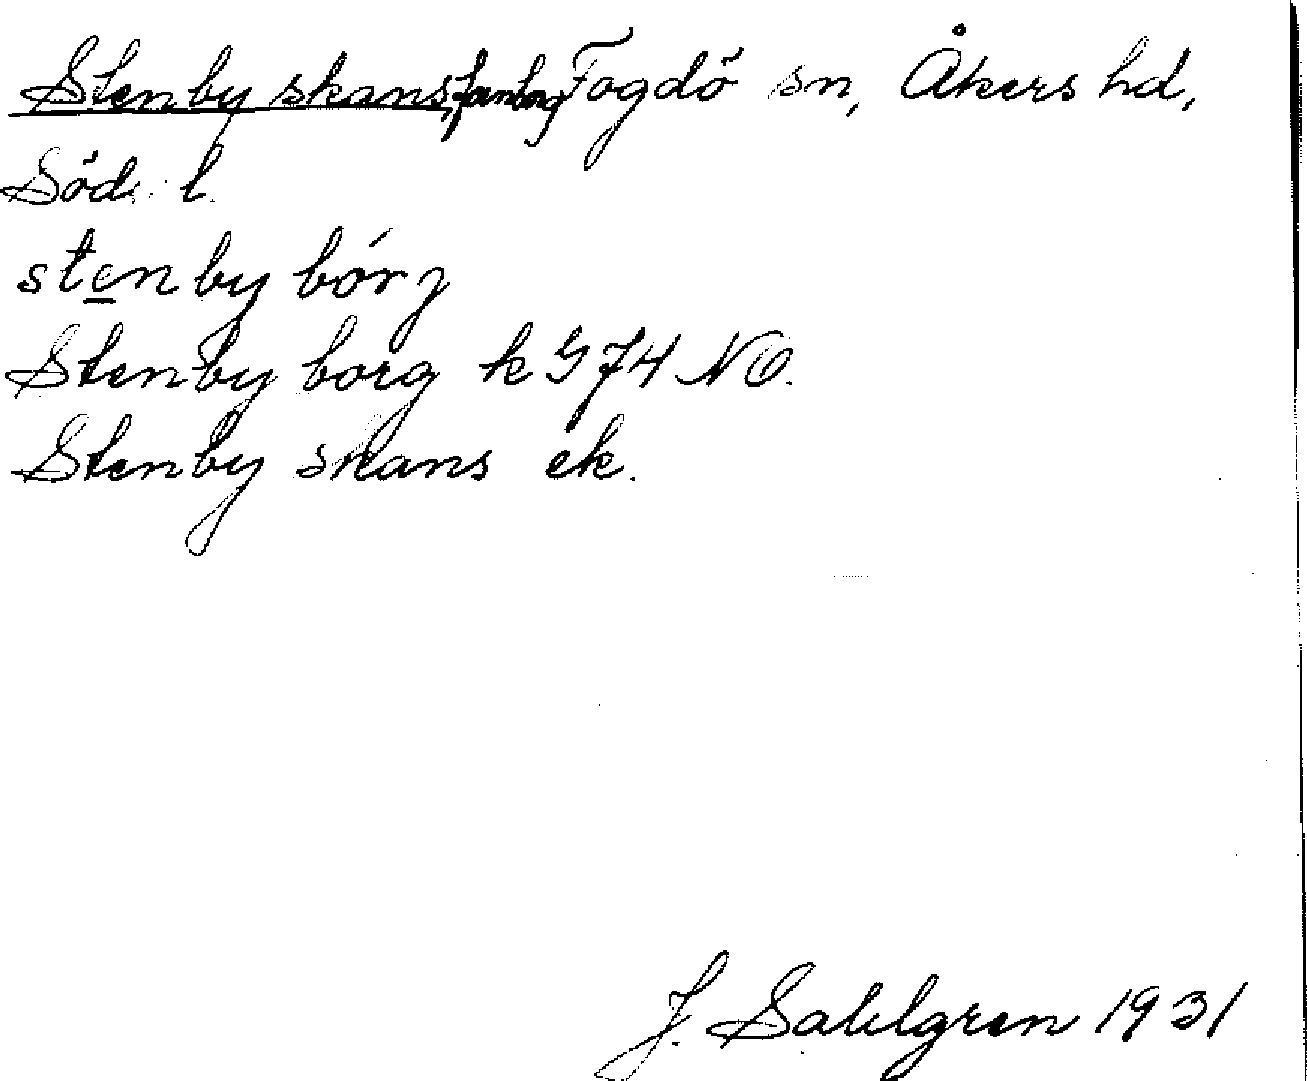 Stenby skans, fornborg Fogdö sn, Åkers hd,
Söd. l.
stenby bórj
Stenby borg k G 74 NO.
Stenby skans ek.
J. Sahlgren 1931